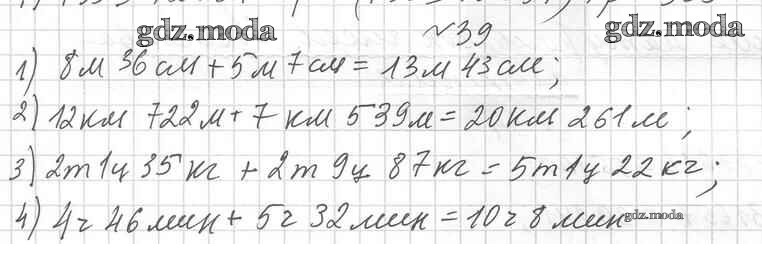 gdz.moda
№39
gdz.moda
1) 8м 36см + 5м 7см = 13м 43см;
2) 12км 722м + 7 км 539м = 20км 261м;
3) 2т1ц 35 кг + 2т 9ц 87кг = 5т1ц 22кг;
4) 4ч 46мин + 5ч 32мин = 10ч 8 мин
gdz.moda